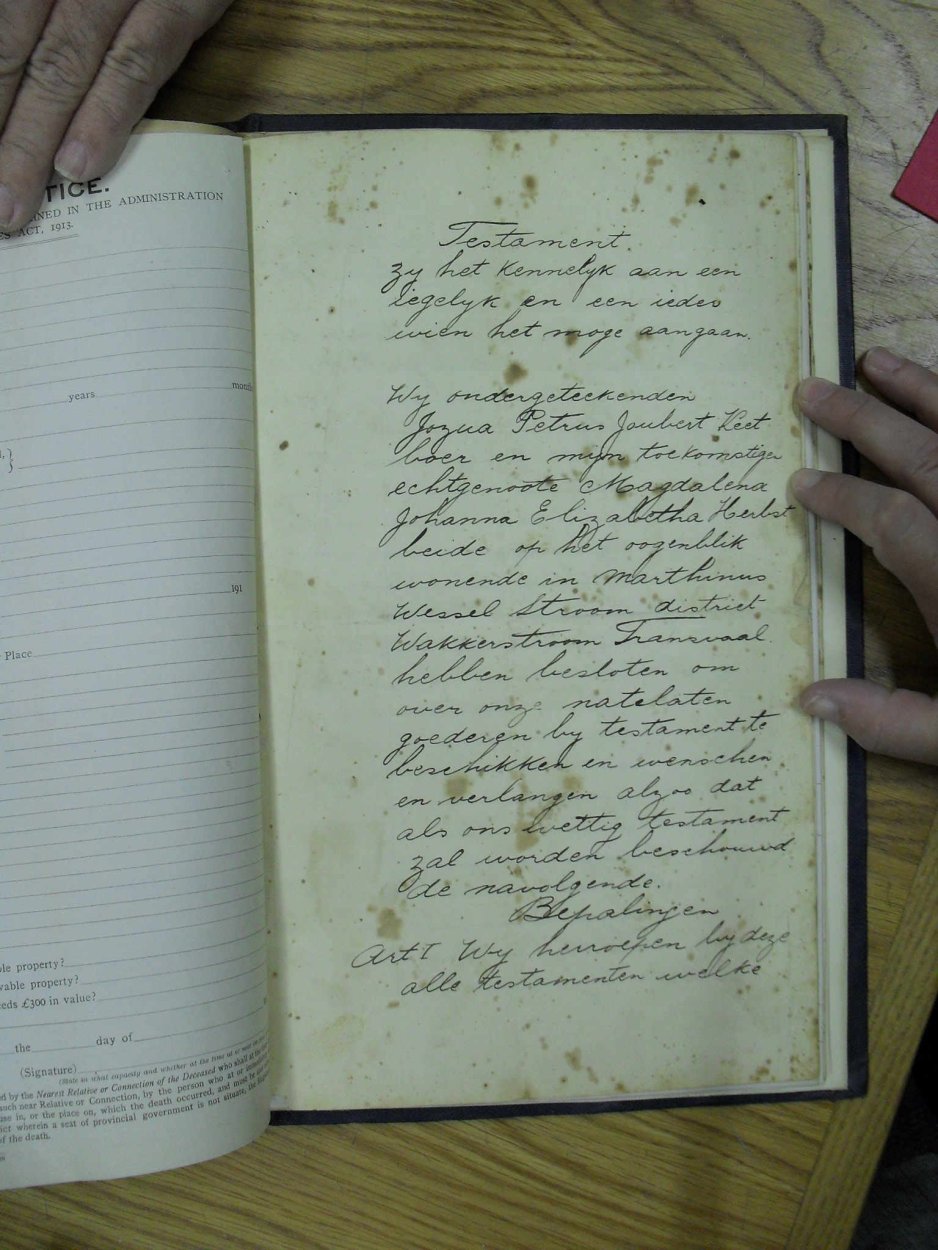 TICE.
INED IN THE ADMINISTRATION
ES ACT, 1913.
years
month
191
Place
ble property?
vable property?
eeds £300 in value?
the day of
(Signature)
(State in what capacity and whether at the time at or
ed by the Nearest Relative or Connection of the Deceased who shall at the
such near Relative or Connection, by the person who at or immediately
use in, or the place on, which the death occurred, and must be
ict wherein a seat of provincial government is not situate, the
of the death.
Testament.
Zy het Kennelyk aan een
iegelyk en een ieder
wien het moge aangaan.
Wy ondergeteekenden
Jozua Petrus Joubert Keet
boer en myn toekomstige
echtgenoote Magdalena
Johanna Elizabetha Herbst
beide op het oogenblik
wonende in Marthinus
Wessel Stroom district
Wakkerstroom Transvaal
hebben besloten om
over onze natelaten
goederen by testament te
beschikken en wenschen
en verlangen alzoo dat
als ons wettig testament
zal worden beschouwd
de navolgende.
Bepalingen
Art I Wy herroepen by deze
alle testamenten welke